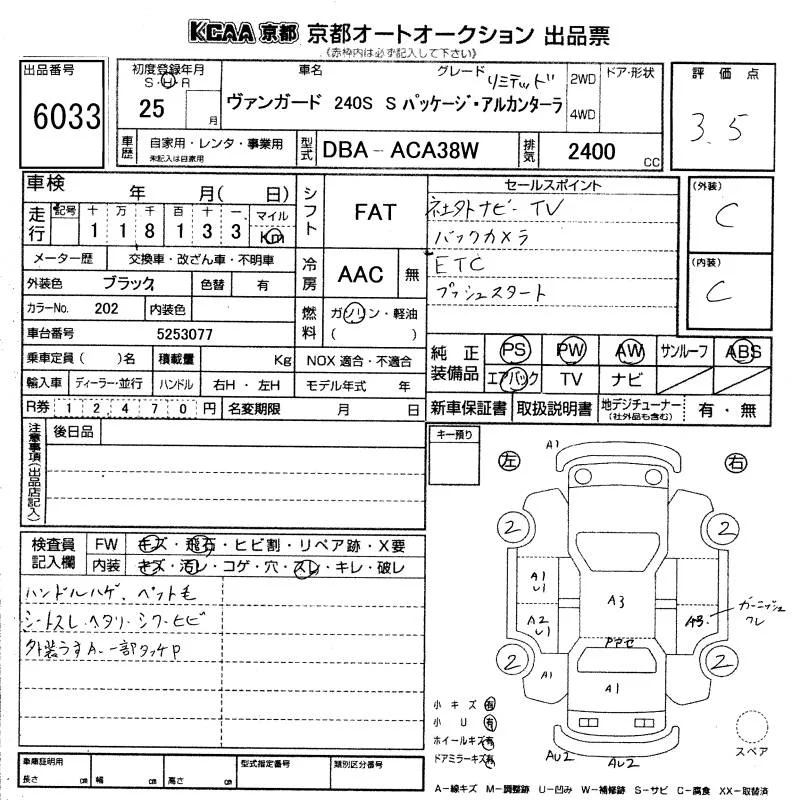 KCAA 京都 京都オートオークション 出品票
《赤枠内は必ず記入して下さい》
出品番号
6033
初度登録年月
S・H・R
25 月
車名
グレード リミテッド
ヴァンガード 240S S パッケージ・アルカンターラ
2WD
4WD
ドア・形状
評価点
3.5
車歴
自家用・レンタ・事業用
未記入は自家用
型式
DBA-ACA38W
排気
2400 CC
車検 年 月( 日)
走行
記号 十 万 千 百 十 一
1 1 8 1 3 3
マイル
Km
メーター歴 交換車・改ざん車・不明車
外装色 ブラック 色替 有
カラーNo. 202 内装色
車台番号 5253077
乗車定員( )名 積載量 Kg
輸入車 ディーラー・並行 ハンドル 右H・左H
R券 12470円 名変期限 月 日
シフト FAT
冷房 AAC 無
燃料 ガソリン・軽油
( )
NOX 適合・不適合
モデル年式 年
セールスポイント
社外ナビ・TV
バックカメラ
ETC
プッシュスタート
(外装)
C
(内装)
C
純正装備品
PS PW AW サンルーフ ABS
エアバック TV ナビ
新車保証書 取扱説明書 地デジチューナー (社外品も含む) 有・無
注意事項(出品店記入)
後日品
キー預り
検査員記入欄
FW キズ・飛石・ヒビ割・リペア跡・X要
内装 キズ・汚レ・コゲ・穴・スレ・キレ・破レ
ハンドルハゲ、ペット毛
シートスレ・ヘタリ・シワ・ヒビ
外装うすA、一部タッチP
左 右
A1
2 2
A1
U1
A2
U1
A3
A3 ガーニッシュ
ワレ
2 2
A1
A1
AU2 AU2
小キズ 有
小U 有
ホイールキズ 有
ドアミラーキズ 有
スペア
車庫証明用
長さ cm 幅 cm 高さ cm
型式指定番号
類別区分番号
A-線キズ M-調整跡 U-凹み W-補修跡 S-サビ C-腐食 XX-取替済